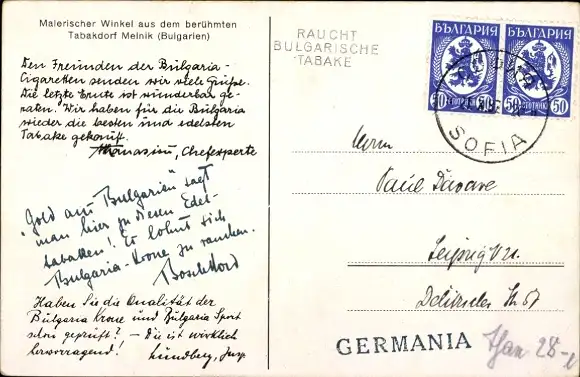 Malerischer Winkel aus dem berühmten
Tabakdorf Melnik (Bulgarien)
Den Freunden der Bulgaria-
Cigaretten senden wir viele Grüße.
Die letzte Ernte ist wunderbar ge-
raten. Wir haben für die Bulgaria
wieder die besten und edelsten
Tabake gekauft.
Chefexperte
"Gold aus Bulgarien" sagt
man hier zu diesen Edel-
tabaken! Es lohnt sich
Bulgaria-Krone zu rauchen.
Haben Sie die Qualität der
Bulgaria Krone und Bulgaria Sport
schon geprüft? – Die ist wirklich
hervorragend! Lundberg,
RAUCHT
BULGARISCHE
TABAKE
БЪЛГАРИЯ БЪЛГАРИЯ
50 СТОТИНКИ 50 50 СТОТИНКИ 50
SOFIA
Herrn
Paul
Leipzig
GERMANIA